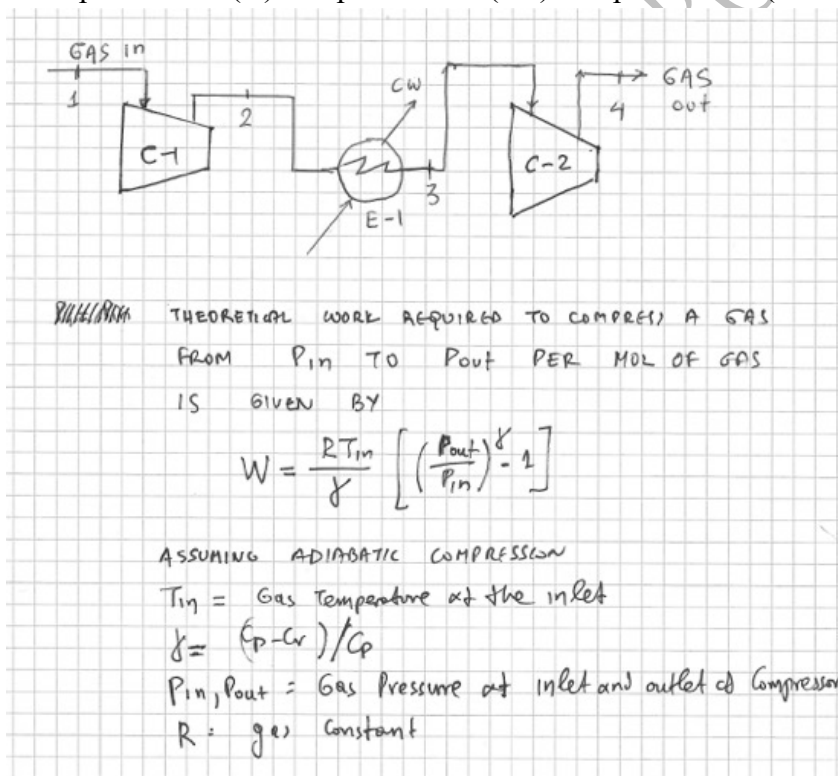 GAS in
1
C-1
2
CW
E-1
3
C-2
4
GAS
out
THEORETICAL WORK REQUIRED TO COMPRESS A GAS
FROM Pin TO Pout PER MOL OF GAS
IS GIVEN BY
W = RTin/γ [(Pout/Pin)^γ - 1]
ASSUMING ADIABATIC COMPRESSION
Tin = Gas Temperature at the inlet
γ = (Cp-Cv)/Cp
Pin, Pout = Gas Pressure at inlet and outlet of Compressor
R = gas constant